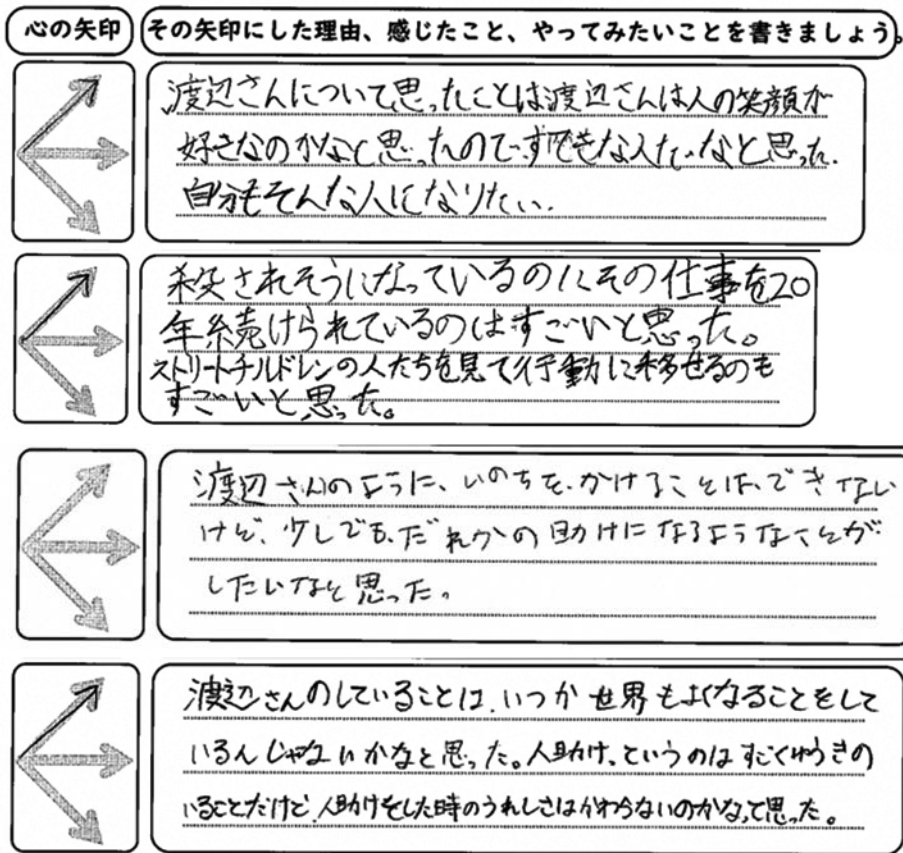 心の矢印
その矢印にした理由、感じたこと、やってみたいことを書きましょう。
渡辺さんについて思ったことは渡辺さんは人の笑顔が
好きなのかなと思ったのですてきな人だなと思った.
自分もそんな人になりたい.
殺されそうになっているのにその仕事を20
年続けられているのはすごいと思った。
ストリートチルドレンの人たちを見て行動に移せるのも
すごいと思った。
渡辺さんのように、いのちを、かけることは、できない
けど、少しでも、だれかの助けになるようなことが
したいなと思った。
渡辺さんのしていることは、いつか世界もよくなることをして
いるんじゃないかなと思った。人助け、というのはすごくゆうきの
いることだけど、人助けをした時のうれしさはかわらないのかなって思った。